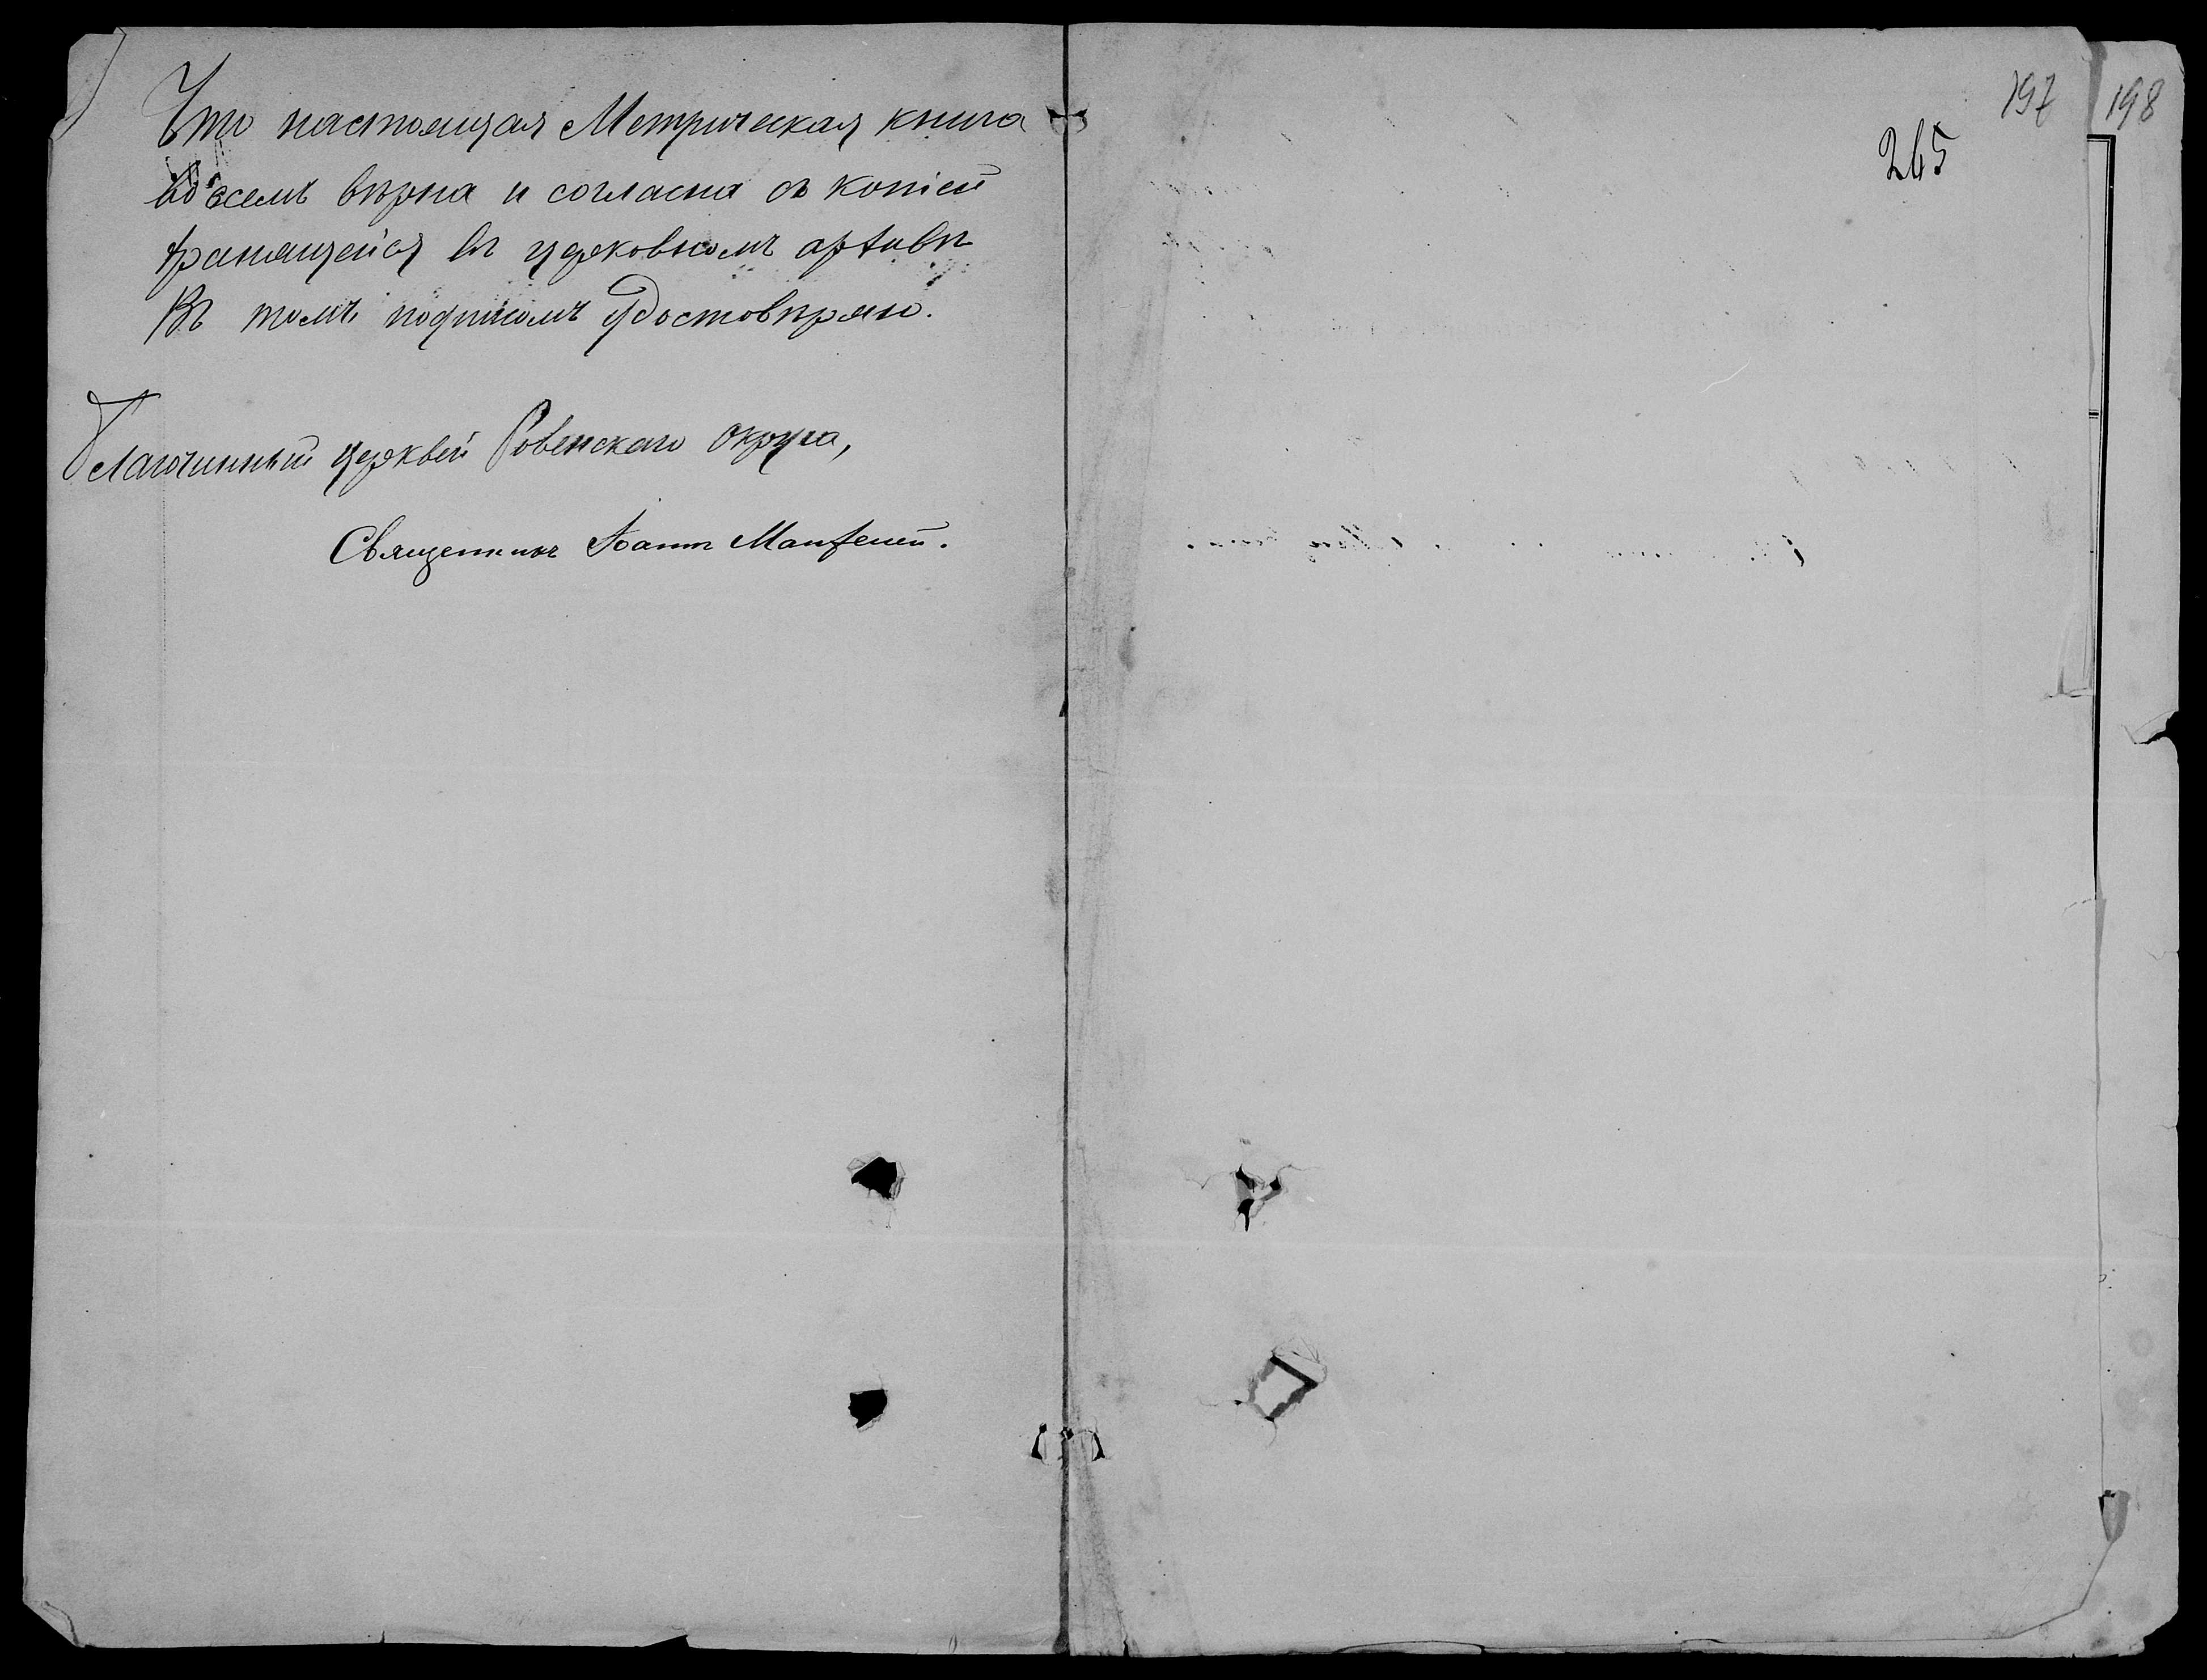 Что настоящая Метрическая книга
во всемъ вѣрна и согласна съ копіей
хранящейся въ церковномъ архивѣ
въ томъ подписомъ удостовѣряю.
Благочинный церквей Ровенскаго округа,
Священникъ Іоаннъ
197
198
265